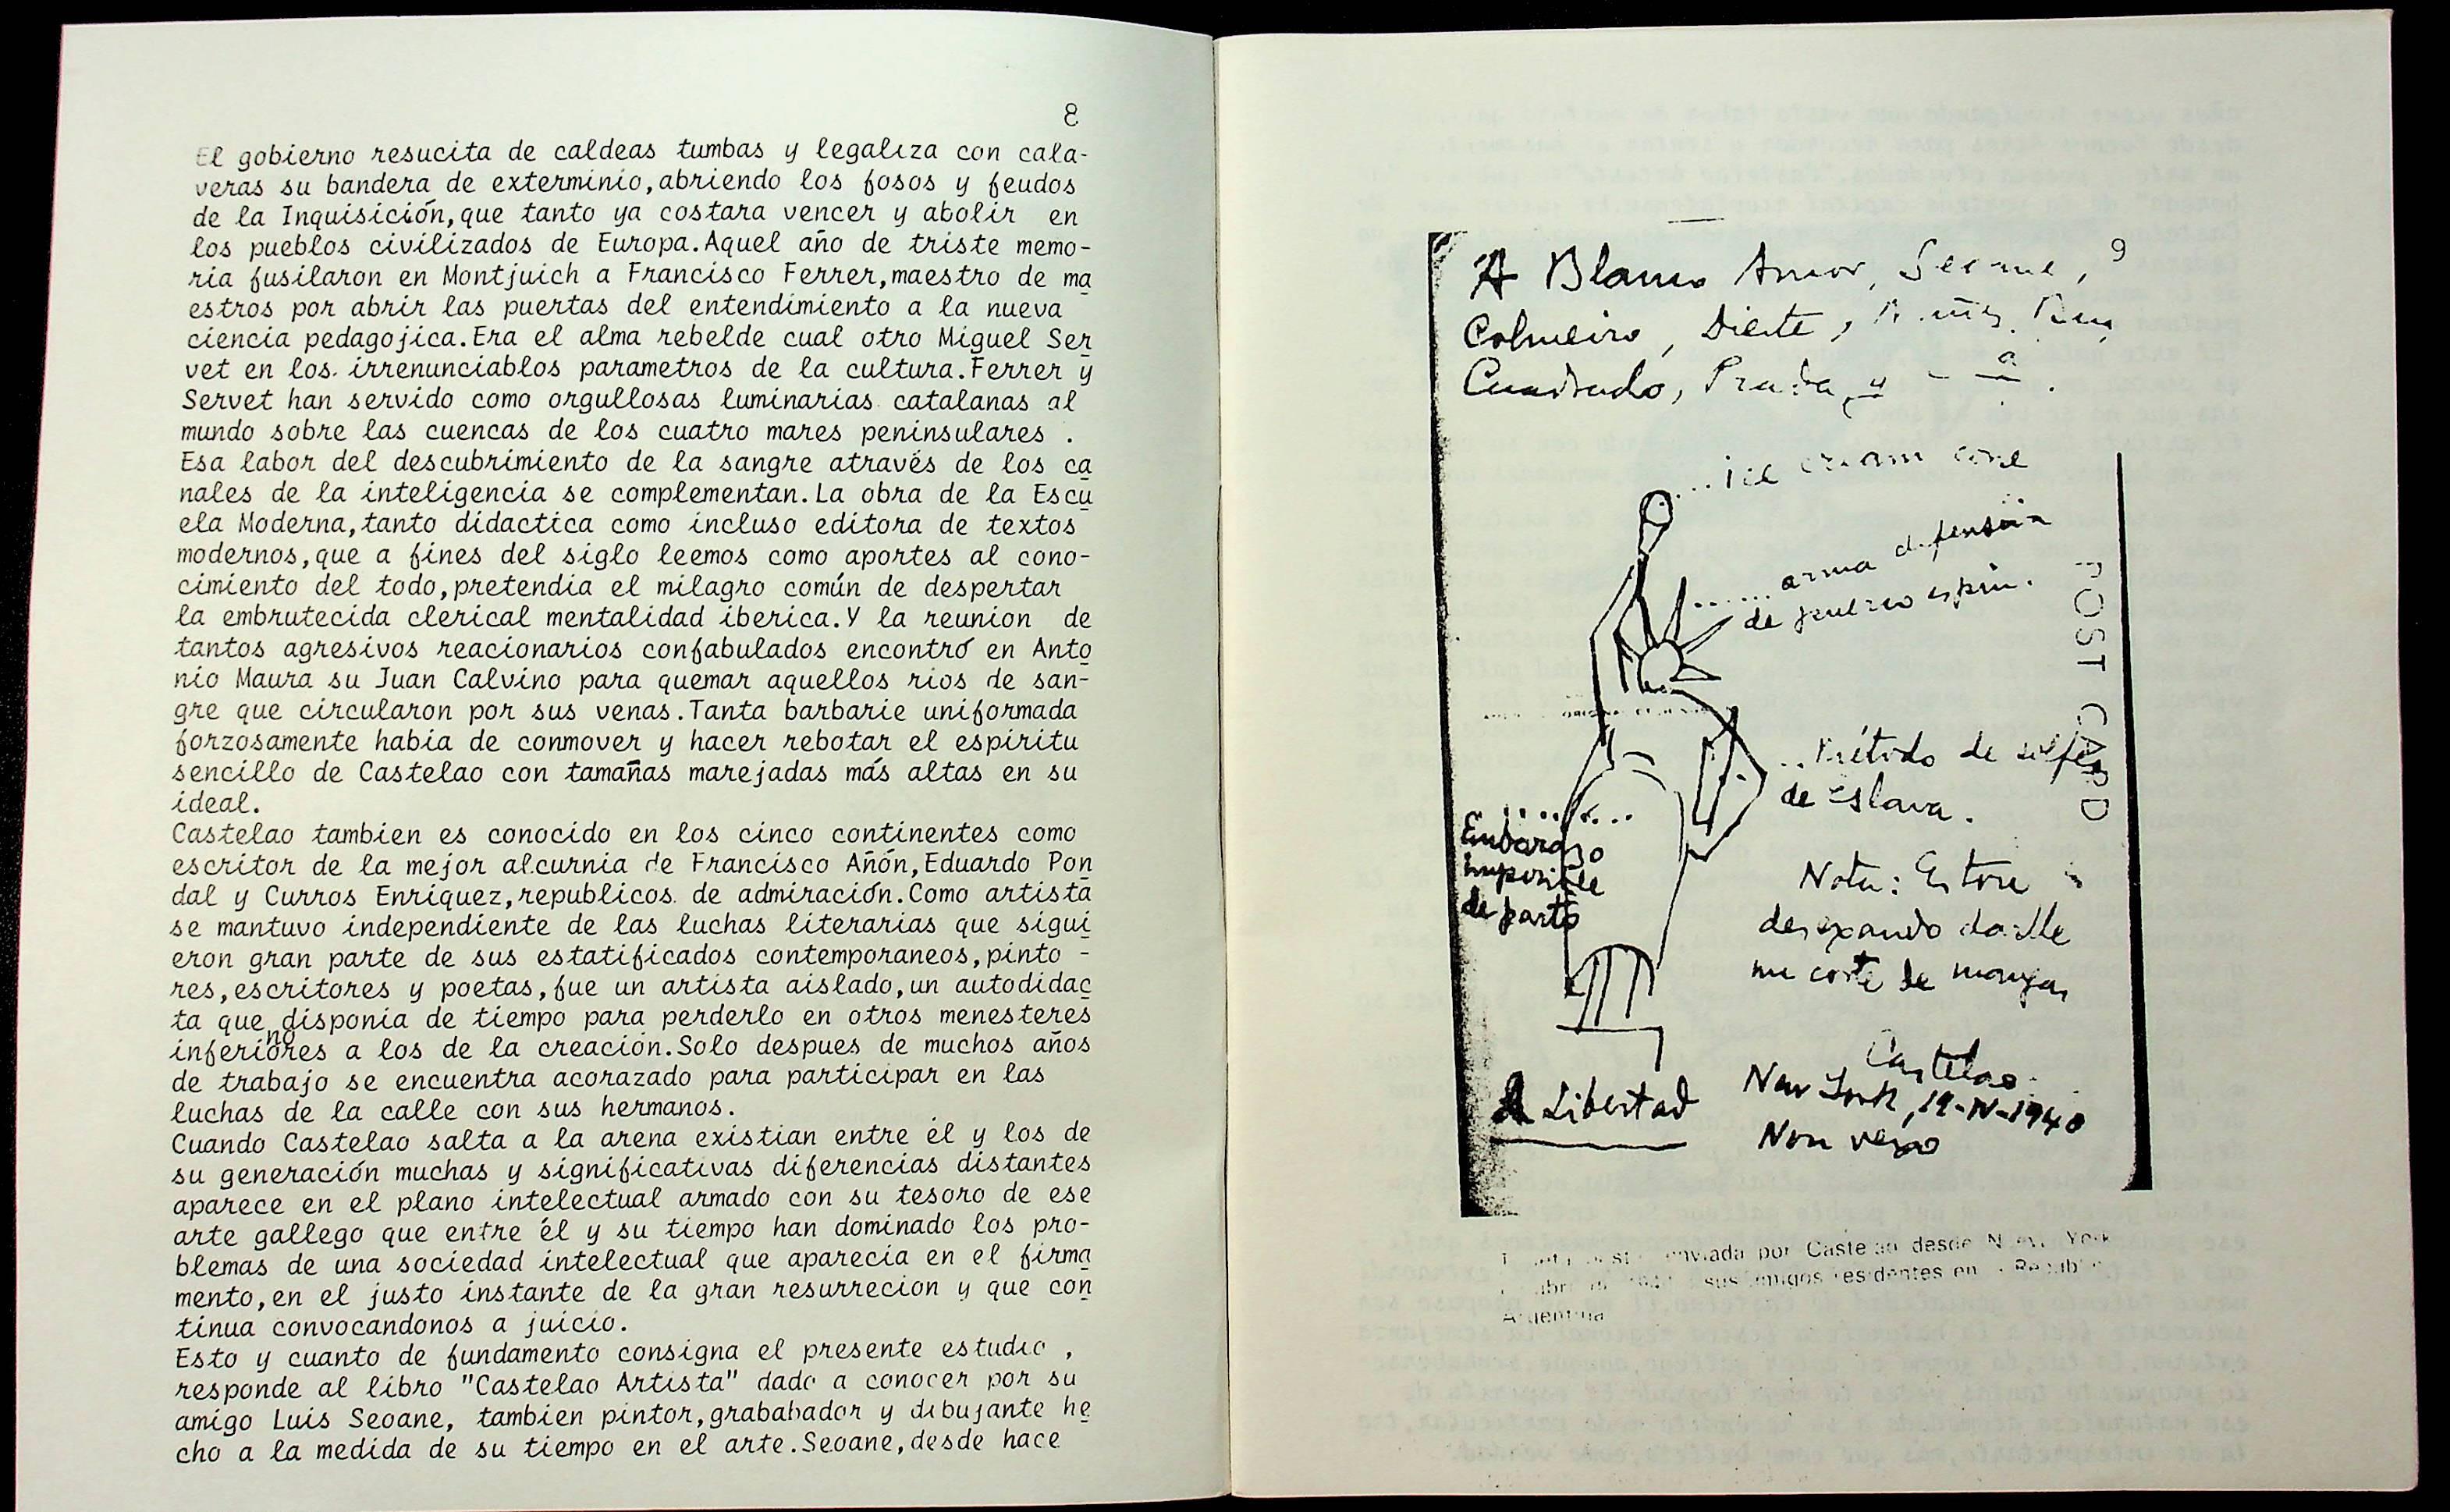 8
El gobierno resucita de caldeas tumbas y legaliza con cala-
veras su bandera de exterminio,abriendo los fosos y feudos
de la Inquisición,que tanto ya costara vencer y abolir en
los pueblos civilizados de Europa.Aquel año de triste memo-
ria fusilaron en Montjuich a Francisco Ferrer,maestro de ma
estros por abrir las puertas del entendimiento a la nueva
ciencia pedagojica.Era el alma rebelde cual otro Miguel Ser
vet en los irrenunciablos parametros de la cultura.Ferrer y
Servet han servido como orgullosas luminarias catalanas al
mundo sobre las cuencas de los cuatro mares peninsulares .
Esa labor del descubrimiento de la sangre através de los ca
nales de la inteligencia se complementan.La obra de la Escu
ela Moderna,tanto didactica como incluso editora de textos
modernos,que a fines del siglo leemos como aportes al cono-
cimiento del todo,pretendia el milagro común de despertar
la embrutecida clerical mentalidad iberica.Y la reunion de
tantos agresivos reacionarios confabulados encontró en Anto
nio Maura su Juan Calvino para quemar aquellos rios de san-
gre que circularon por sus venas.Tanta barbarie uniformada
forzosamente habia de conmover y hacer rebotar el espiritu
sencillo de Castelao con tamañas marejadas más altas en su
ideal.
Castelao tambien es conocido en los cinco continentes como
escritor de la mejor alcurnia de Francisco Añón,Eduardo Pon
dal y Curros Enriquez,republicos de admiración.Como artista
se mantuvo independiente de las luchas literarias que sigui
eron gran parte de sus estatificados contemporaneos,pinto -
res,escritores y poetas,fue un artista aislado,un autodidac
ta que no disponia de tiempo para perderlo en otros menesteres
inferiores a los de la creación.Solo despues de muchos años
de trabajo se encuentra acorazado para participar en las
luchas de la calle con sus hermanos.
Cuando Castelao salta a la arena existian entre él y los de
su generación muchas y significativas diferencias distantes
aparece en el plano intelectual armado con su tesoro de ese
arte gallego que entre él y su tiempo han dominado los pro-
blemas de una sociedad intelectual que aparecia en el firma
mento,en el justo instante de la gran resurrecion y que con
tinua convocandonos a juicio.
Esto y cuanto de fundamento consigna el presente estudio ,
responde al libro "Castelao Artista" dado a conocer por su
amigo Luis Seoane, tambien pintor,grababador y dibujante he
cho a la medida de su tiempo en el arte.Seoane,desde hace
9
A Blanco Amor, Seoane,
Colmeiro, Dieste,
Cuadrado, Prada, y
ice cream cone
arma defensiva
de puerco espín.
POST CARD
Método de solfeo
de Eslava.
Embarazo
imposible
de parto
Nota: Estou
desexando darlle
un corte de mangas
Castelao
New York, 19-IV-1940
Non vexo
A Libertad
enviada por Castelao desde Nueva York
sus amigos residentes en
Argentina